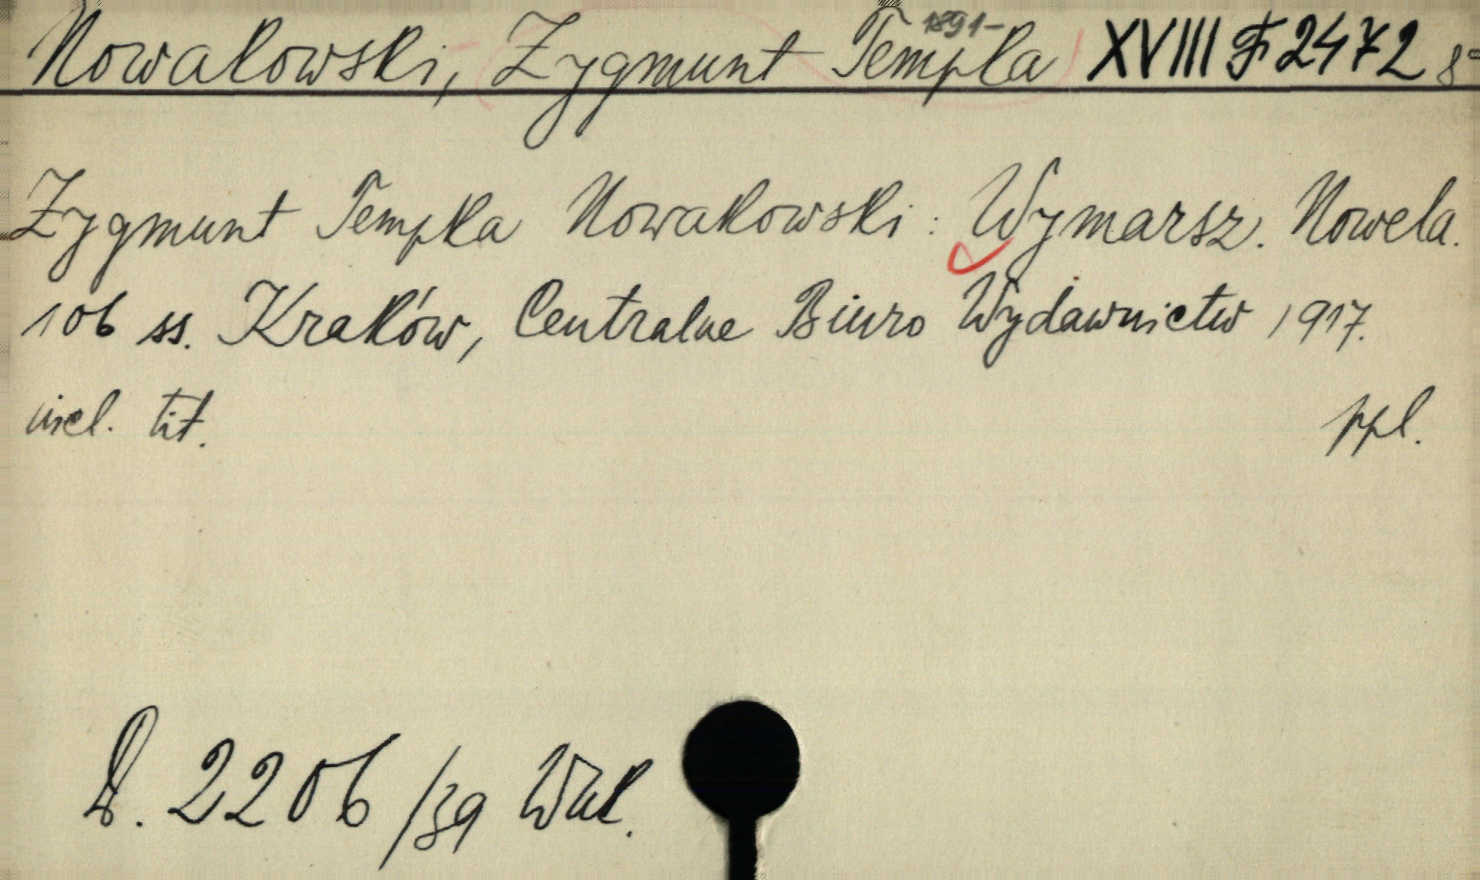 Nowakowski, Zygmunt Tempka 1891- XVIII F 2472 8°
Zygmunt Tempka Nowakowski: Wymarsz. Nowela.
106 ss. Kraków, Centralne Biuro Wydawnictw 1917.
incl. tit. ppl.
D. 2206/39 Wak.